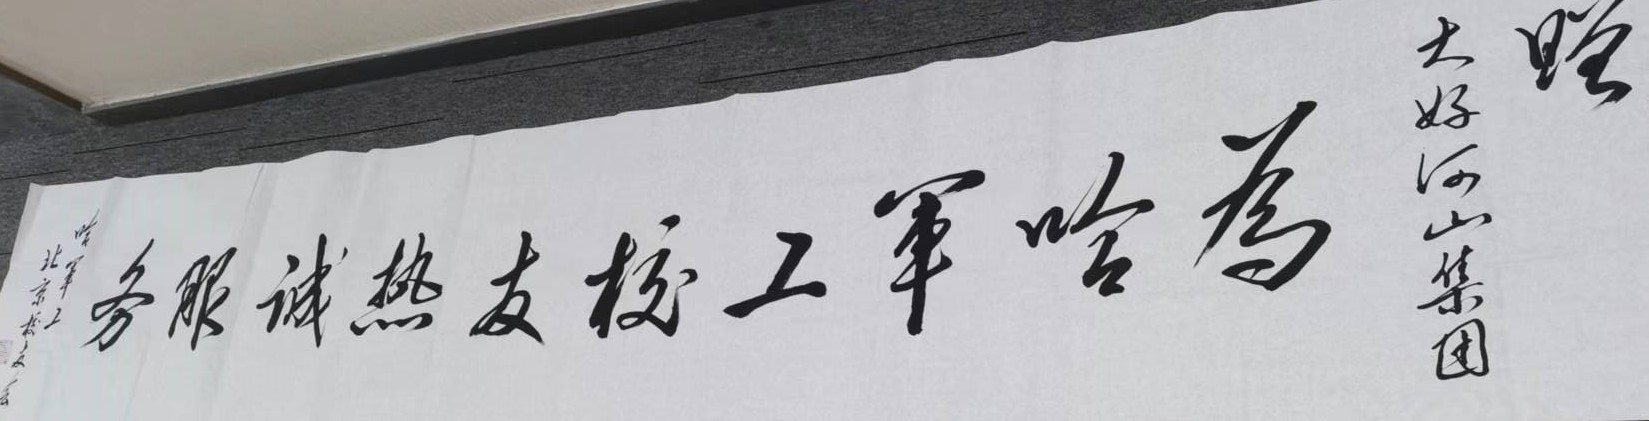 赠
大好河山集团
为哈军工校友热诚服务
哈军工
北京校友会